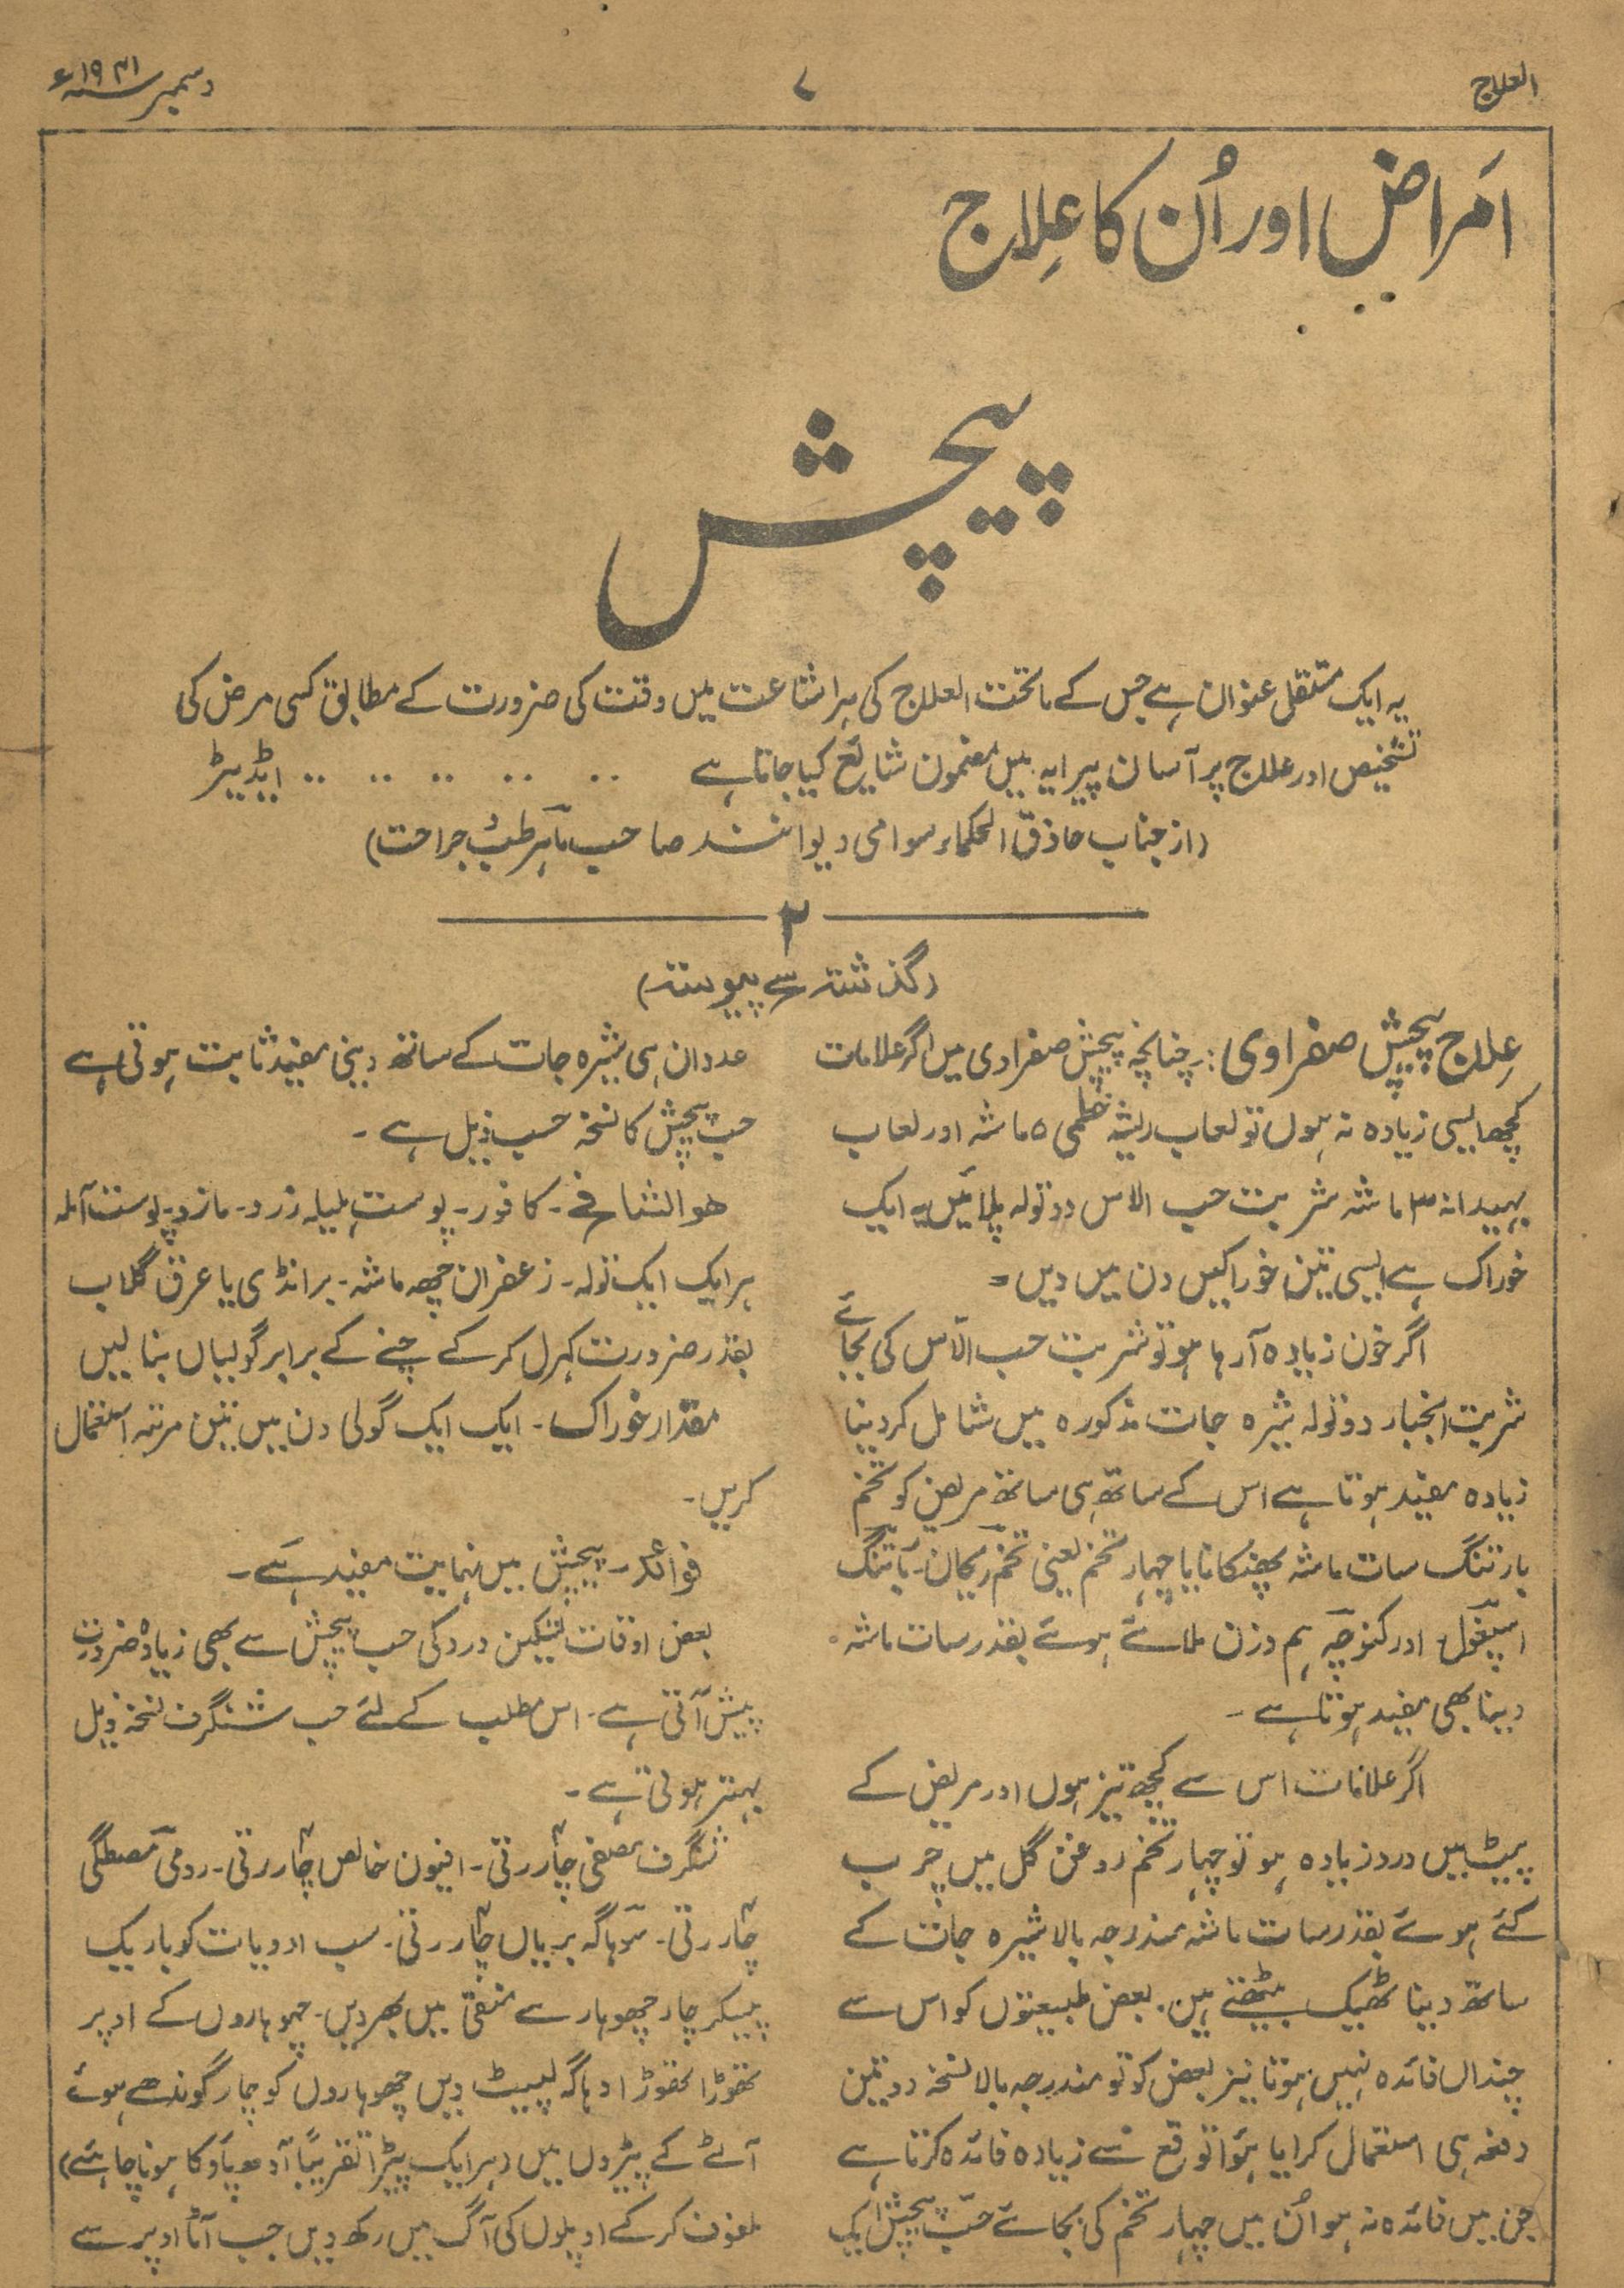 العلاج
۷
دسمبر سنہ ۱۹۳۱ء
اَمراض اور اُن کا علِاج
پیچش
یہ ایک مستقل عنوان ہے جس کے ماتحت العلاج کی ہر اشاعت میں وقت کی ضرورت کے مطابق کسی مرض کی
تشخیص اور علاج پر آسان پیرایہ میں مضمون شایع کیا جاتا ہے .. .. .. .. .. ایڈیٹر
(از جناب حاذق الحکماء سوامی دیوا نند صاحب ماہر طب و جراحت)
۲
(گذشتہ سے پیوستہ)
عِلاج پیچش صفراوی :۔ چنانچہ پیچش صفراوی میں اگر علامات
کچھ ایسی زیادہ نہ ہوں تو لعاب ریشہ خطمی ۵ ماشہ اور لعاب
بہیدانہ ۳ ماشہ شربت حب الاس دو تولہ پلائیں یہ ایک
خوراک ہے ایسی تین خوراکیں دن میں دیں =
اگر خون زیادہ آرہا ہو تو شربت حب الآس کی بجائے
شربت انجبار دو تولہ شیرہ جات مذکورہ میں شامل کر دینا
زیادہ مفید ہوتا ہے اس کے ساتھ ہی ساتھ مریض کو تخم
بارتنگ سات ماشہ پھنکانا یا چہار تخم یعنی تخم ریحان۔ بارتنگ
اسپغول اور کنوچہ ہم وزن ملائے ہوئے بقدر سات ماشہ
دینا بھی مفید ہوتا ہے ۔
اگر علامات اس سے کچھ تیز ہوں اور مریض کے
پیٹ میں درد زیادہ ہو تو چہار تخم روغن گل میں چرب
کئے ہوئے بقدر سات ماشہ مندرجہ بالا شیرہ جات کے
ساتھ دینا ٹھیک بیٹھتے ہیں۔ بعض طبیعتوں کو اس سے
چنداں فائدہ نہیں ہوتا نیز بعض کو تو مندرجہ بالا نسخہ دو تین
دفعہ ہی استعمال کرایا ہؤا توقع سے زیادہ فائدہ کرتا ہے
جن میں فائدہ نہ ہو اُن میں چہار تخم کی بجائے حب پیچش ایک
عدد ان ہی شیرہ جات کے ساتھ دینی مفید ثابت ہوتی ہے
حب پیچش کا نسخہ حسب ذیل ہے ۔
ھوالشافی ۔ کافور۔ پوست ہلیلہ زرد۔ مازو۔ پوست آملہ
ہر ایک ایک تولہ۔ زعفران چھ ماشہ۔ برانڈی یا عرق گلاب
بقدر ضرورت کہرل کر کے چنے کے برابر گولیاں بنا لیں
مقدار خوراک ۔ ایک ایک گولی دن میں تین مرتبہ استعمال
کریں۔
فوائد ۔ پیچش میں نہایت مفید ہے ۔
بعض اوقات تسکین درد کی حب پیچش سے بھی زیادہ ضرورت
پیش آتی ہے ۔ اس مطلب کے لئے حب شنگرف نسخہ ذیل
بہتر ہوتی ہے ۔
شنگرف مصفی چار رتی ۔ افیون خالص چار رتی ۔ رومی مصطگی
چار رتی ۔ سوہاگہ بریاں چار رتی ۔ سب ادویات کو باریک
پیسکر چار چھوہارے منقیٰ میں بھر دیں۔ چھوہاروں کے اوپر
تھوڑا تھوڑا دہاگہ لپیٹ دیں چھوہاروں کو چار گوندھے ہوئے
آٹے کے پیڑوں میں (ہر ایک پیڑا تقریباً آدھ پاؤ کا ہونا چاہئے)
ملفوف کر کے اوپلوں کی آگ میں رکھ دیں جب آٹا اوپر سے